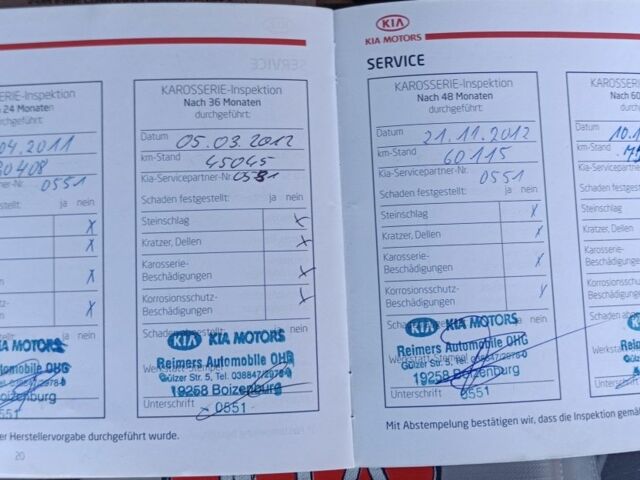 KIA
KIA MOTORS
SERVICE
ERIE-Inspektion
24 Monaten
durchgeführt:
04.2011
30408
ner-Nr. 0551
estellt: ja nein
X
X
X
X
tellt: ja nein
A MOTORS
utomobile OHG
Boizenburg
0551
er Herstellervorgabe durchgeführt wurde.
20
KAROSSERIE-Inspektion
Nach 36 Monaten
durchgeführt:
Datum 05.03.2012
km-Stand 45045
Kia-Servicepartner-Nr. 0551
Schaden festgestellt: ja nein
Steinschlag X
Kratzer, Dellen X
Karosserie-
Beschädigungen X
Korrosionsschutz-
Beschädigungen X
Schaden nein
KIA KIA MOTORS
Reimers Automobile OHG
Gülzer Str. 5, Tel. 038847/2978-0
19258 Boizenburg
Unterschrift 0551
KAROSSERIE-Inspektion
Nach 48 Monaten
durchgeführt:
Datum 21.11.2012
km-Stand 60115
Kia-Servicepartner-Nr. 0551
Schaden festgestellt: ja nein
Steinschlag X
Kratzer, Dellen X
Karosserie-
Beschädigungen X
Korrosionsschutz-
Beschädigungen X
Schaden nein
KIA KIA MOTORS
Reimers Automobile OHG
Gülzer Str. 5, Tel. 038847/2978-0
19258 Boizenburg
Unterschrift 0551
Mit Abstempelung bestätigen wir, dass die Inspektion gemä
KARO
Nach 60
du
Datum 10.1
km-Stand
Kia-Servicepar
Schaden festg
Steinschlag
Kratzer, Dellen
Karosserie-
Beschädigunge
Korrosionsschu
Beschädigunge
Schaden
KIA
Reim
Gülz
19
Unterschrift